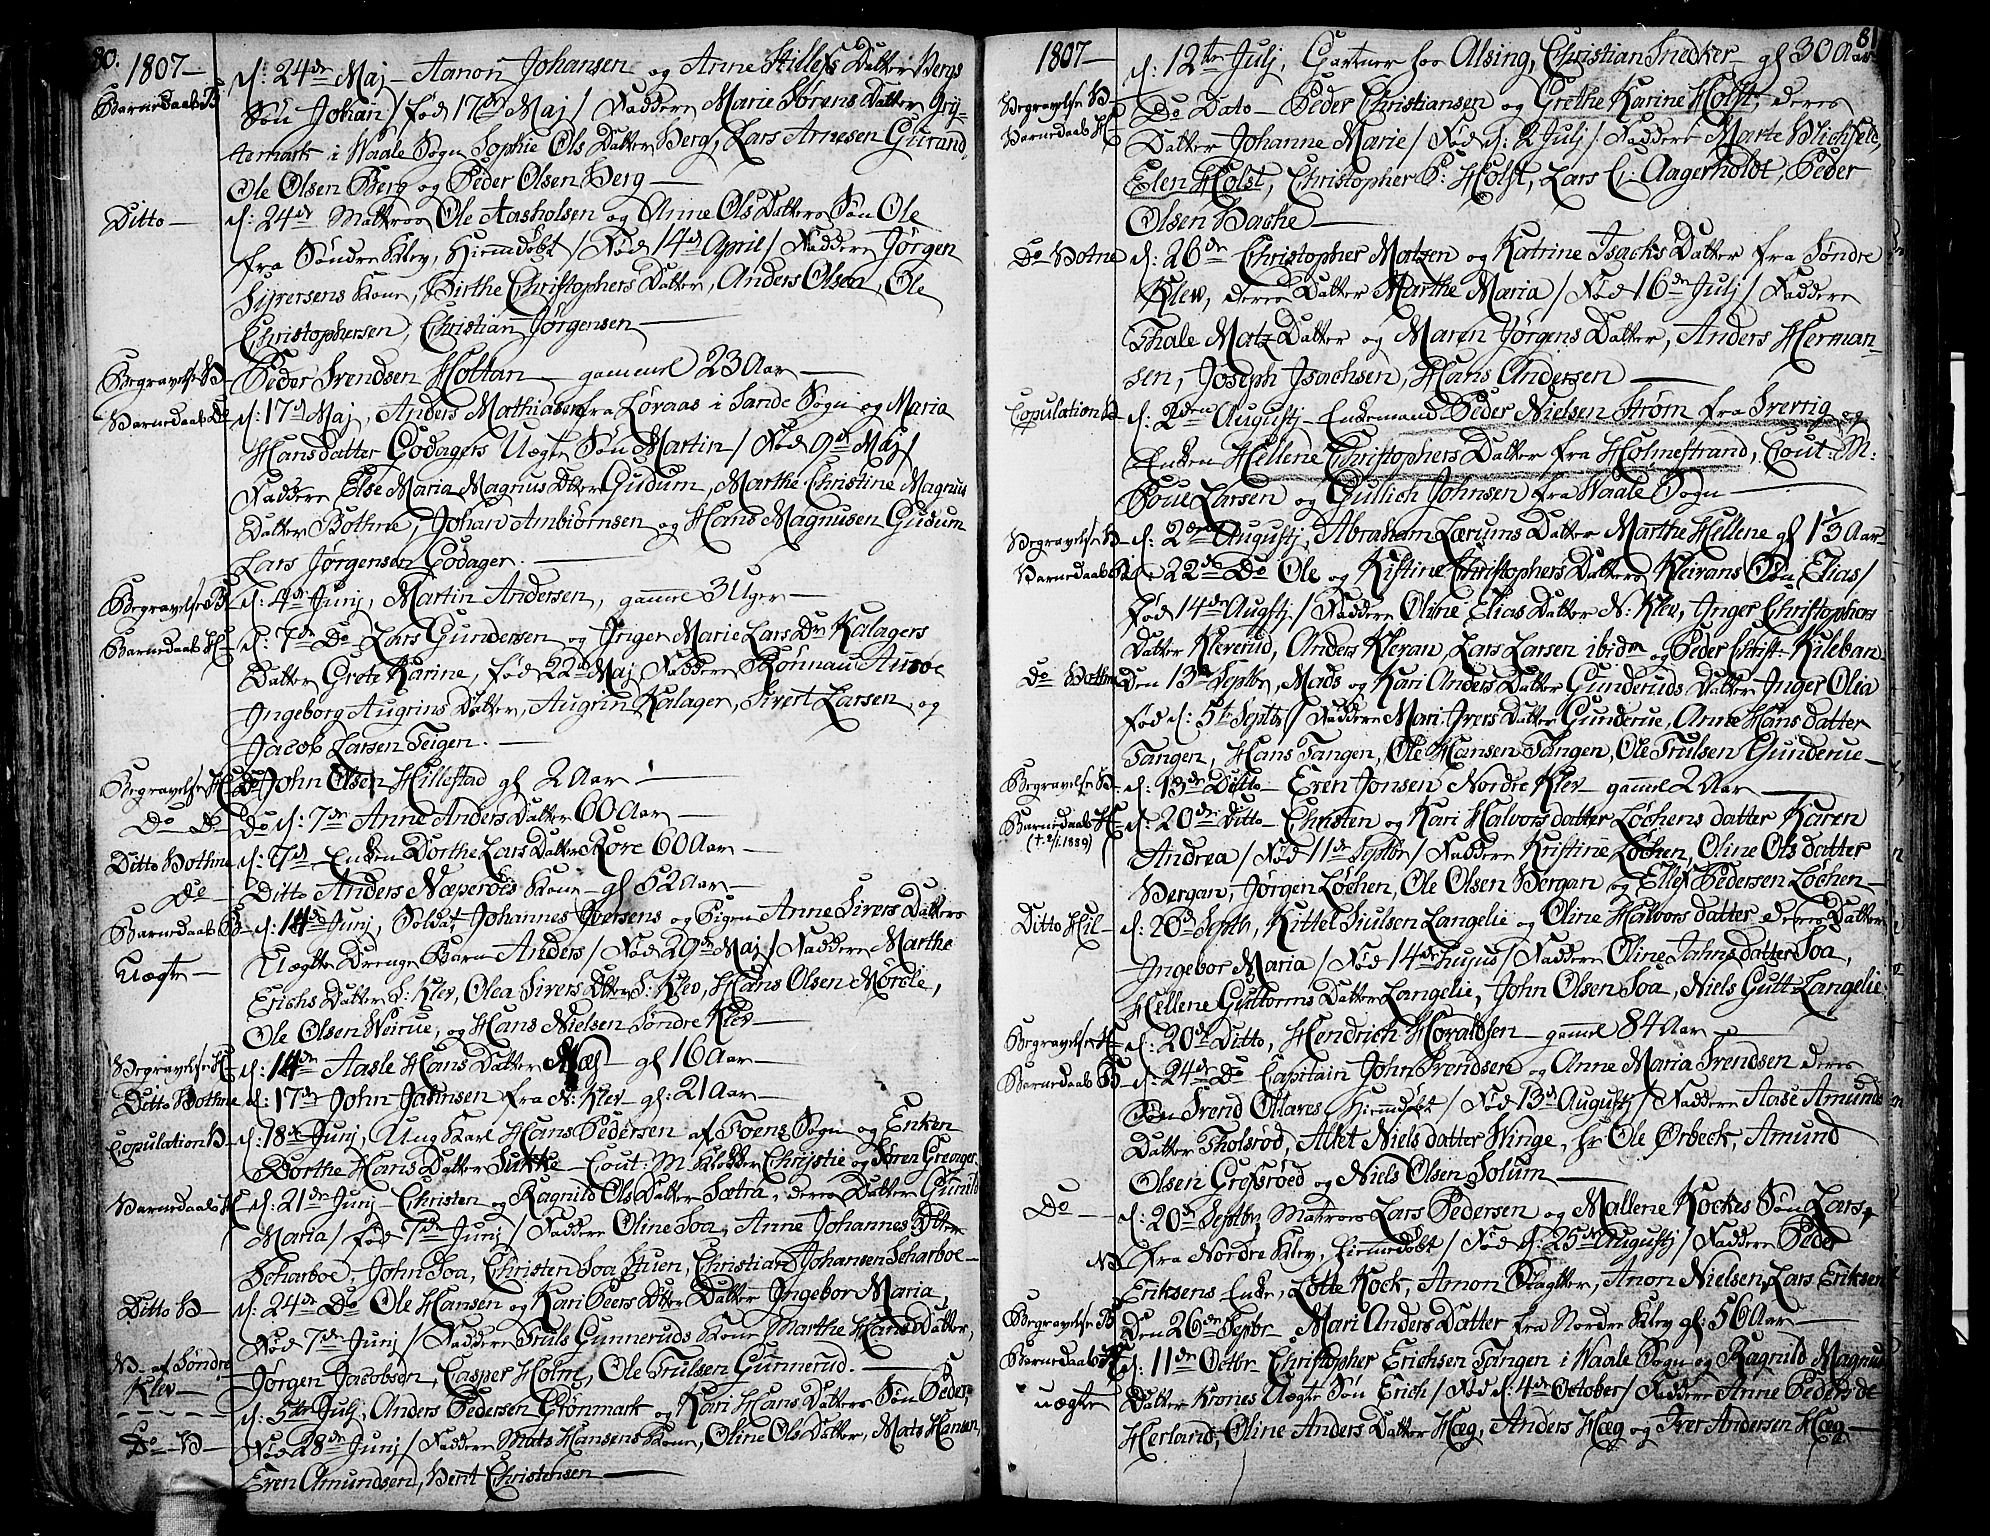 80.
1807 —
Barnedaab B
d: 24de Maj — Aamon Johansen og Anne Ellefs Datter Bergs
Søn Johan / fød 17de Maj / Faddere Marie Sørens Datter Gry-
temark i Waale Sogn, Sophie Ols Datter Berg, Lars Arnesen Gurand,
Ole Olsen Berg og Peder Olsen Berg —
Ditto — d: 24de Mattros Ole Aasholsen og Anne Ols Datters Søn Ole
fra Søndre Klev, Hiemdøbt / Fød 14de April / Faddere Jørgen
Siversens Kone, Birthe Christophers Datter, Anders Olsen, Ole
Christophersen, Christian Jørgensen —
Begravelse B — Peder Svendsen Holtan — gammel 23 Aar —
Barnedaab Do d: 17de Maj, Anders Mathiasen fra Løvaas i Sande Sogn og Maria
Hansdatter Godagers Uægte Søn Martin / Fød 9de Maj /
Faddere Else Maria Magnus Dtter Gudum, Marthe Christine Magnus
Datter Bothne, Johan Ambiørnsen og Hans Magnusen Gudum
Lars Jørgensen Godager. —
Begravelse B d: 4de Junj, Martin Andersen, gammel 3 Uger —
Barnedaab H — d: 7de Do Lars Gundersen og Inger Marie Lars Dtr Kalagers
Datter Grete Karine, fød 22de Maj Faddere
Ingeborg Augrins Datter, Augrin Kalager, Sivert Larsen og
Jacob Larsen Teigen. —
Begravelse H Do John Olsen Hillestad gl 2 Aar —
Do — Do Do d: 7de Anne Anders Datter 60 Aar —
Ditto Bothne d: 7de Enken Dorthe Lars Datter Røre 60 Aar —
Do — Ditto Anders Næperøes Kone — gl 62 Aar —
Barnedaab B — d: 14de Junj, Soldat Johannes Iversens og Pigen Anne Sivers Datters
Uægte — Uægte Drenge Barn Anders / Fød 29de Maj / Faddere Marthe
Erichs Datter S: Klev, Olea Sivers Dtter S: Klev, Hans Olsen Mørdle,
Ole Olsen Weirue, og Hans Nielsen Søndre Klev —
Begravelse H — d: 14de Aasle Hans Datter Næs — gl 16 Aar —
Ditto Bothne d: 17de John Jahnsen fra N: Klev gl: 21 Aar —
Copulation B — d: 18de Junj, Ung Karl Hans Pedersen af Foens Sogn og Enken
Dorthe Hans Datter Sukke — Cout: M. Klokker Christie og Søren Greager.
Barnedaab H d: 21de Junj — Christen og Ragnild Ols Datter Sætra, deres Datter Gunild
Maria / fød 7de Junj / Faddere Oline Soa, Anne Johannes Dtter
Scharboe, John Soa, Christen Soa Stuen, Christian Johansen Scharboe —
Ditto B — d: 24de Do Ole Hansen og Kari Peers Dtter Datter Ingebor Maria,
Fød 7de Junj / Faddere Truls Gunneruds Kone Marthe Hans Datter,
N. af Søndre Klev — Jørgen Jacobsen, Casper Holm, Ole Trulsen Gunnerud. —
d: 5te Julj, Anders Pedersen Grønmark og Kari Hans Datters Søn Peder,
Do — B — Fød 28de Junj / Faddere Mats Hansens Kone, Oline Ols Datter, Mats Hansen,
Even Amundsen, Bent Christensen —
81
1807 —
Begravelse B — d: 12te Julj, Gartner hos Alsing, Christian Snedker — gl 30 Aar
Barnedaab H Do Dato — Peder Christiansen og Grethe Karine Holst, deres
Datter Johanne Marie / Fød d: 2 Julj / Faddere Marte Blichfeld,
Elen Holst, Christopher P: Holst, Lars C: Aagerholdt, Peder
Olsen Bache —
Do Botne d: 26de Christopher Matzen og Katrine Isachs Datter fra Søndre
Klev, deres Datter Marthe Maria / Fød 16de Julj / Faddere
Thale Matz Datter og Maren Jørgens Datter, Anders Herman-
sen, Joseph Isachsen, Hans Andersen —
Copulation B d: 2den Augustj — Enkemand Peder Nielsen Strøm fra Sverrig og
Enken Hellene Christophers Datter fra Holmestrand, Cout: M:
Poul Larsen og Gullich Johnsen fra Waale Sogn —
Begravelse B — d: 2den Augustj, Abraham Lærums Datter Marthe Hellene gl 1 1/3 Aar —
Barnedaab B d: 22de Do Ole og Kistine Christophers Datters Kleivans Søn Elias /
fød 14de Augstj / Faddere Oline Elias Datter N: Klev, Inger Christophers
Datter Kleverud, Anders Klevan, Lars Larsen ibidm og Peder Christ: Kileban
Do Bothne Den 13de Septbr, Mads og Kari Anders Datter Gunderuds Datter Inger Olia
Fød d: 5te Septbr / Faddere Mari Ivers Datter Gunderue, Anne Hans datter
Tangen, Hans Tangen, Ole Hansen Tangen, Ole Trulsen Gunderue —
Begravelse B — d: 13de Ditto — Even Jonsen Nordre Klev — gammel 2 Aar —
Barnedaab H d: 20de Ditto — Christen og Kari Halvors datter Løchens datter Karen
(† 2/1.1889) Andrea / Fød 11de Septbr / Faddere Kristine Løchen, Oline Ols datter
Bergan, Jørgen Løchen, Ole Olsen Bergan og Ellef Pedersen Løchen —
Ditto Hil — d: 20de Septbr, Kittel Siulsen Langelie og Oline Halvors datter deres Datter
Ingebor Maria / Fød 14de hujus / Faddere Oline Jahns datter Soa,
Hellene Guttorms Datter Langelie, John Olsen Soa, Niels Gutt: Langelie
Begravelse H d: 20de Ditto, Hendrich Horaldsen — gammel 84 Aar —
Barnedaab B — d: 24de Do Capitain John Svendsen og Anne Maria Svendsen deres
Søn Svend Olaves hiemdøbt / Fød 13de Augustj / Faddere Aase Amunds
Datter Tholsrød, Allet Niels datter Winge, Hr Ole Ørbeck, Amund
Olsen Grefsrøed og Niels Olsen Solum —
Do — d: 20de Septbr Matros Lars Pedersen og Mallene Kockes Søn Lars,
N fra Nordre Klev, hiemdøbt / Fød d: 25de Augustj / Faddere Peder
Eriksens Enke, Lotte Kock, Amon Slagter, Anon Nielsen, Lars Eriksen
Begravelse B Den 26de Septbr — Mari Anders Datter fra Nordre Klev gl: 56 Aar —
Barnedaab H d: 11de Octbr Christopher Erichsen Tangen i Waale Sogn og Ragnild Magnus
uægte Datter Krones Uægte Søn Erich / Fød d: 4de October / Faddere Anne Peders dt
Herland, Oline Anders Datter Hæg, Anders Hæg og Iver Andersen Hæg —